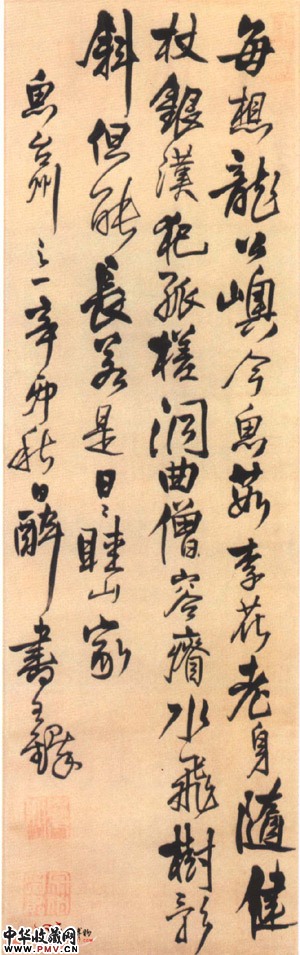 每想龍公嶼今思茹李花老身隨健
杖銀漢犯孤槎洞曲僧容瘠水飛樹影
斜但能長若是日〻睦山家
思台州之一辛卯秋日醉書王鐸
中华收藏网
WWW.PMV.CN